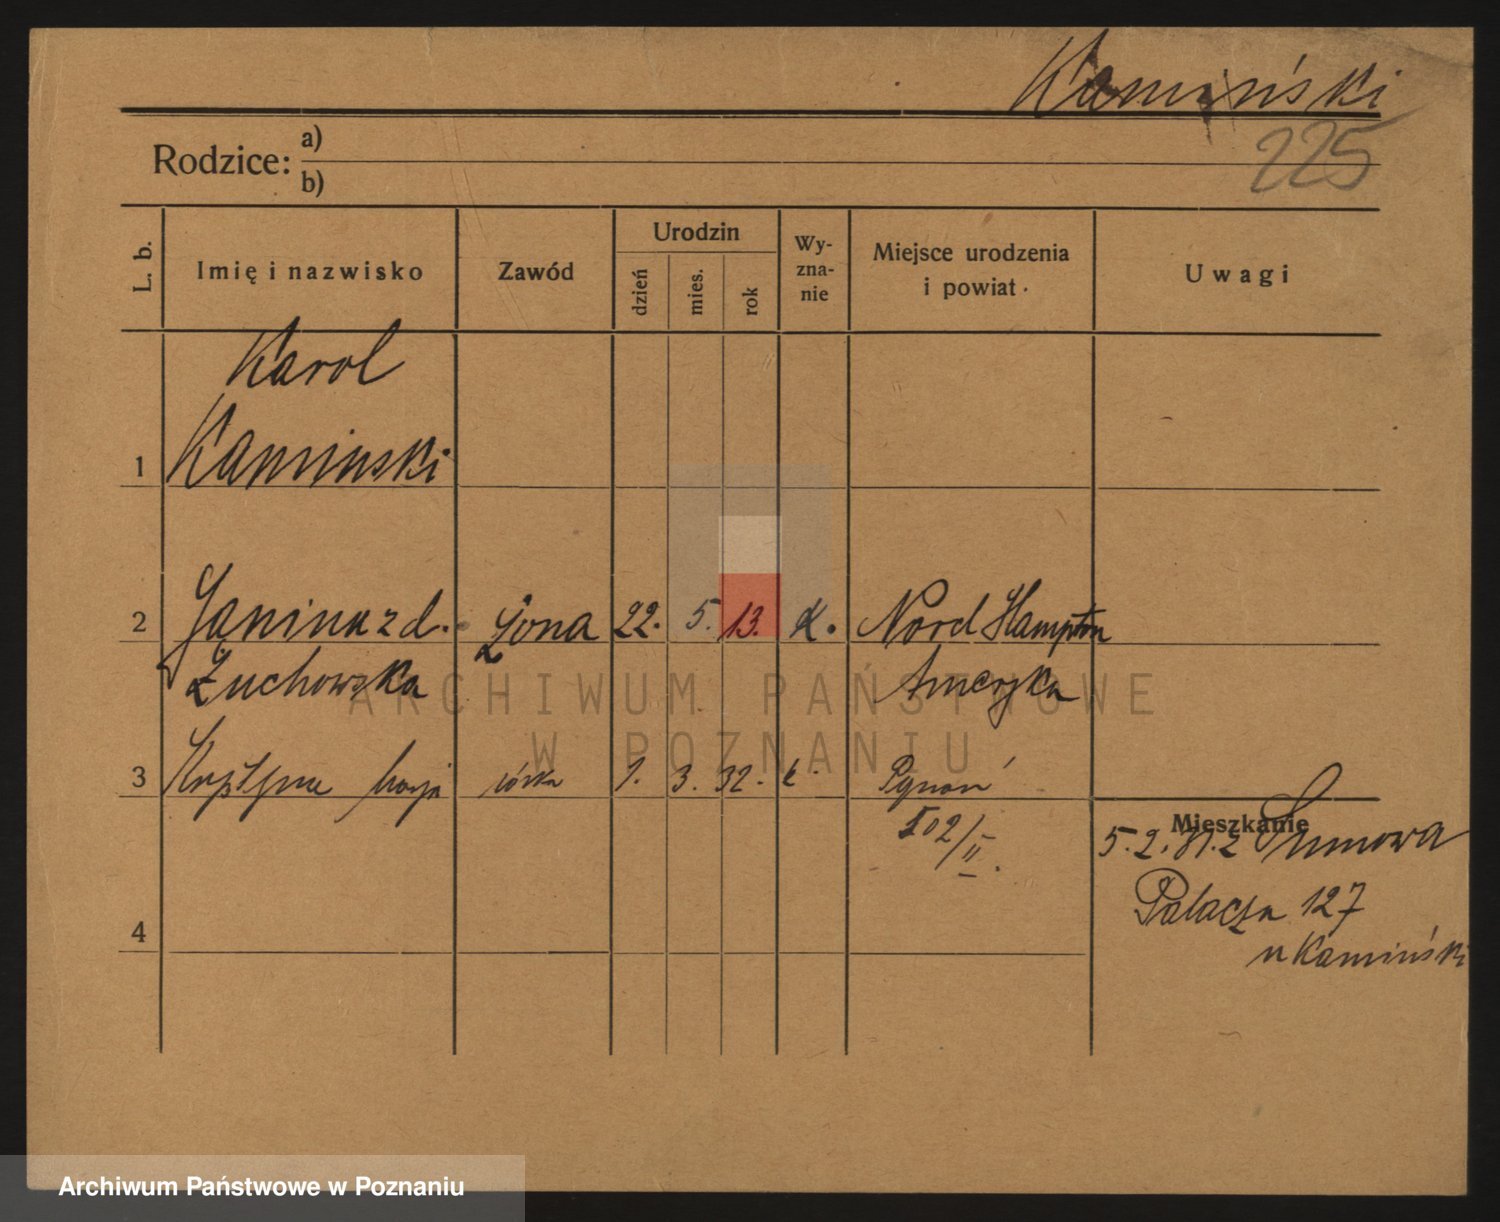 Kamiński
225
Rodzice: a)
b)
L. b. Imię i nazwisko Zawód Urodzin dzień mies. rok Wy-zna-nie Miejsce urodzenia i powiat Uwagi
Karol
1 Kaminski
2 Janina z d. Żona 22. 5. 13. k. Nord Hampton
Żuchowska Ameryka
ARCHIWUM PAŃSTWOWE
W POZNANIU
3 Krystyna córka 1. 3. 32. k.
502/II.
Mieszkanie
5.2.
Palacza 127
u Kamiński
4
Archiwum Państwowe w Poznaniu